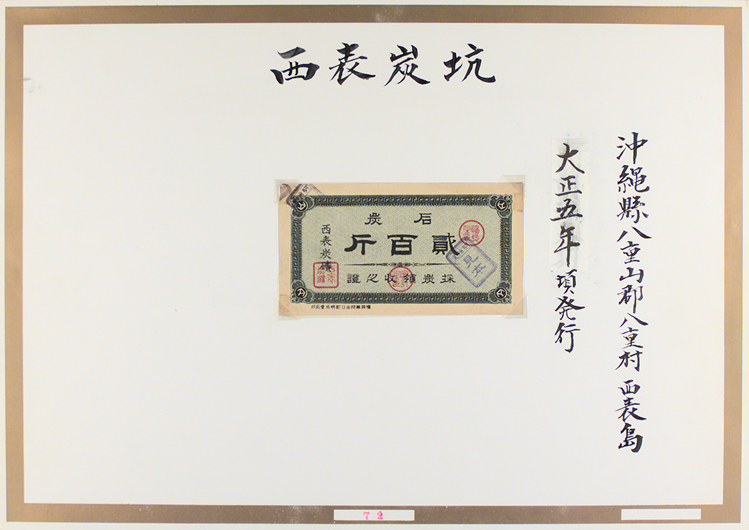 西表炭坑
沖縄縣八重山郡八重村西表島
大正五年頃発行
石炭
貳百斤
採炭領收之證
西表炭礦
見本
72